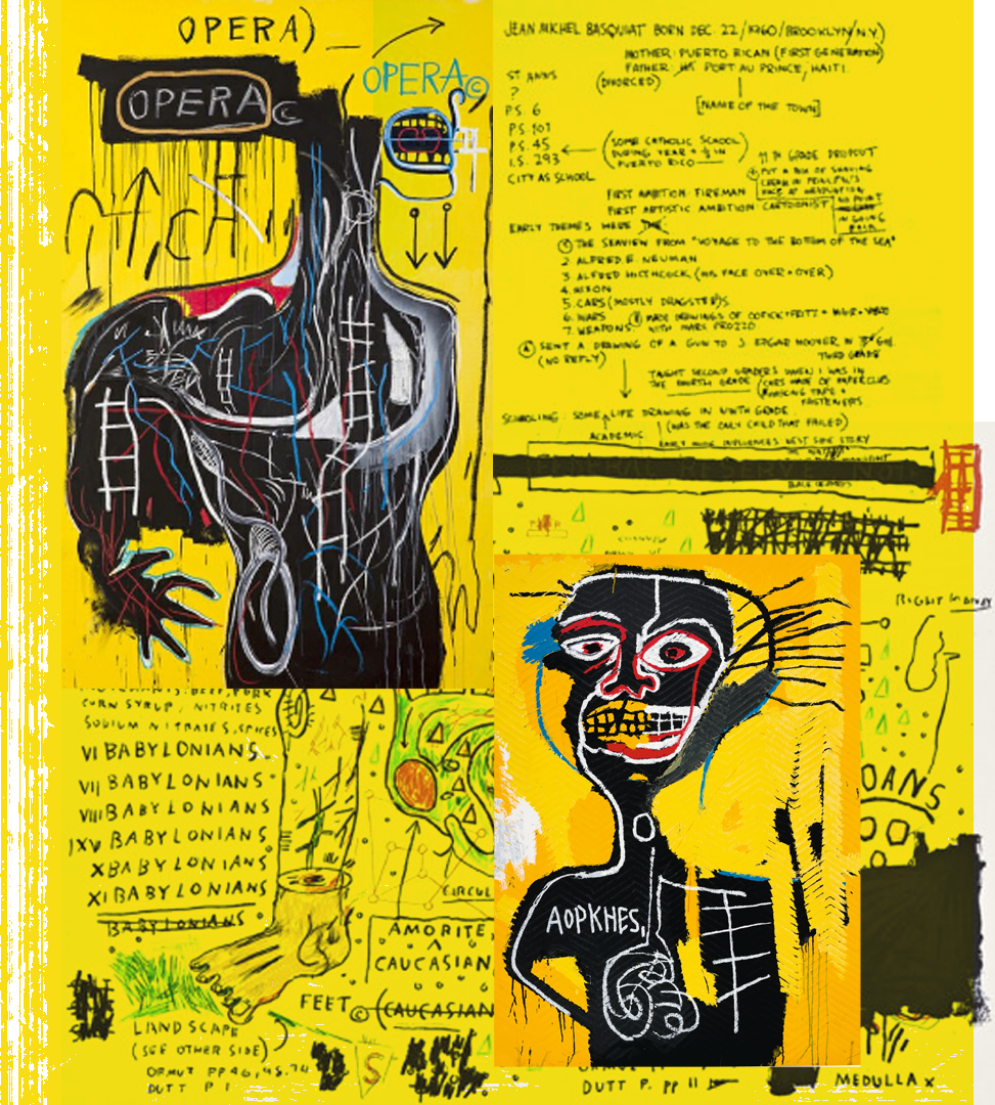 OPERA)
OPERA©
OPERA©
JEAN MICHEL BASQUIAT BORN DEC. 22/1960/BROOKLYN/N.Y.)
MOTHER: PUERTO RICAN (FIRST GENERATION)
FATHER: PORT AU PRINCE, HAITI.
(DIVORCED)
ST. ANNS
?
P.S. 6
P.S. 101
P.S. 45
I.S. 293
CITY AS SCHOOL
[NAME OF THE TOWN]
(SOME CATHOLIC SCHOOL)
DURING YEAR + ½ IN
PUERTO RICO
11TH GRADE DROPOUT
PUT A BOX OF SHAVING
CREAM IN PRINCIPAL'S
FACE AT GRADUATION
NO POINT
IN GOING
BACK
FIRST AMBITION: FIREMAN
FIRST ARTISTIC AMBITION: CARTOONIST
EARLY THEMES WERE
① THE SEAVIEW FROM "VOYAGE TO THE BOTTOM OF THE SEA"
2 ALFRED E. NEUMAN
3 ALFRED HITCHCOCK (HIS FACE OVER + OVER)
4. NIXON
5. CARS (MOSTLY DRAGSTERS)
6. WARS
7. WEAPONS
MADE DRAWINGS OF
WITH MARC PROZZO
SENT A DRAWING OF A GUN TO J. EDGAR HOOVER IN
THIRD GRADE
(NO REPLY)
TAUGHT SECOND GRADERS WHEN I WAS IN
THE FOURTH GRADE (CARS MADE OF PAPERCLIPS
MASKING TAPE +
FASTENERS
SCHOOLING: SOME LIFE DRAWING IN NINTH GRADE.
ACADEMIC
(WAS THE ONLY CHILD THAT FAILED)
EARLY MUSIC INFLUENCES WEST SIDE STORY
BLACK ORPHEUS
RIGHT
CORN SYRUP, NITRITES
SODIUM NITRATES, SPICES
VI BABYLONIANS.
VII BABYLONIANS
VIII BABYLONIANS
IXV BABYLONIANS
X BABYLONIANS
XI BABYLONIANS
BABYLONIANS
CIRCUL
AMORITE,
CAUCASIAN
FEET © (CAUCASIAN
LANDSCAPE
(SEE OTHER SIDE)
DUTT P 1
S
AOPKHES,
OANS
DUTT P. PP 11
MEDULLA X